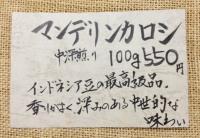 マンデリンカロシ
中深煎り 100g550円
インドネシア豆の最高級品。
香りがよく深みのある中性的な
味わい